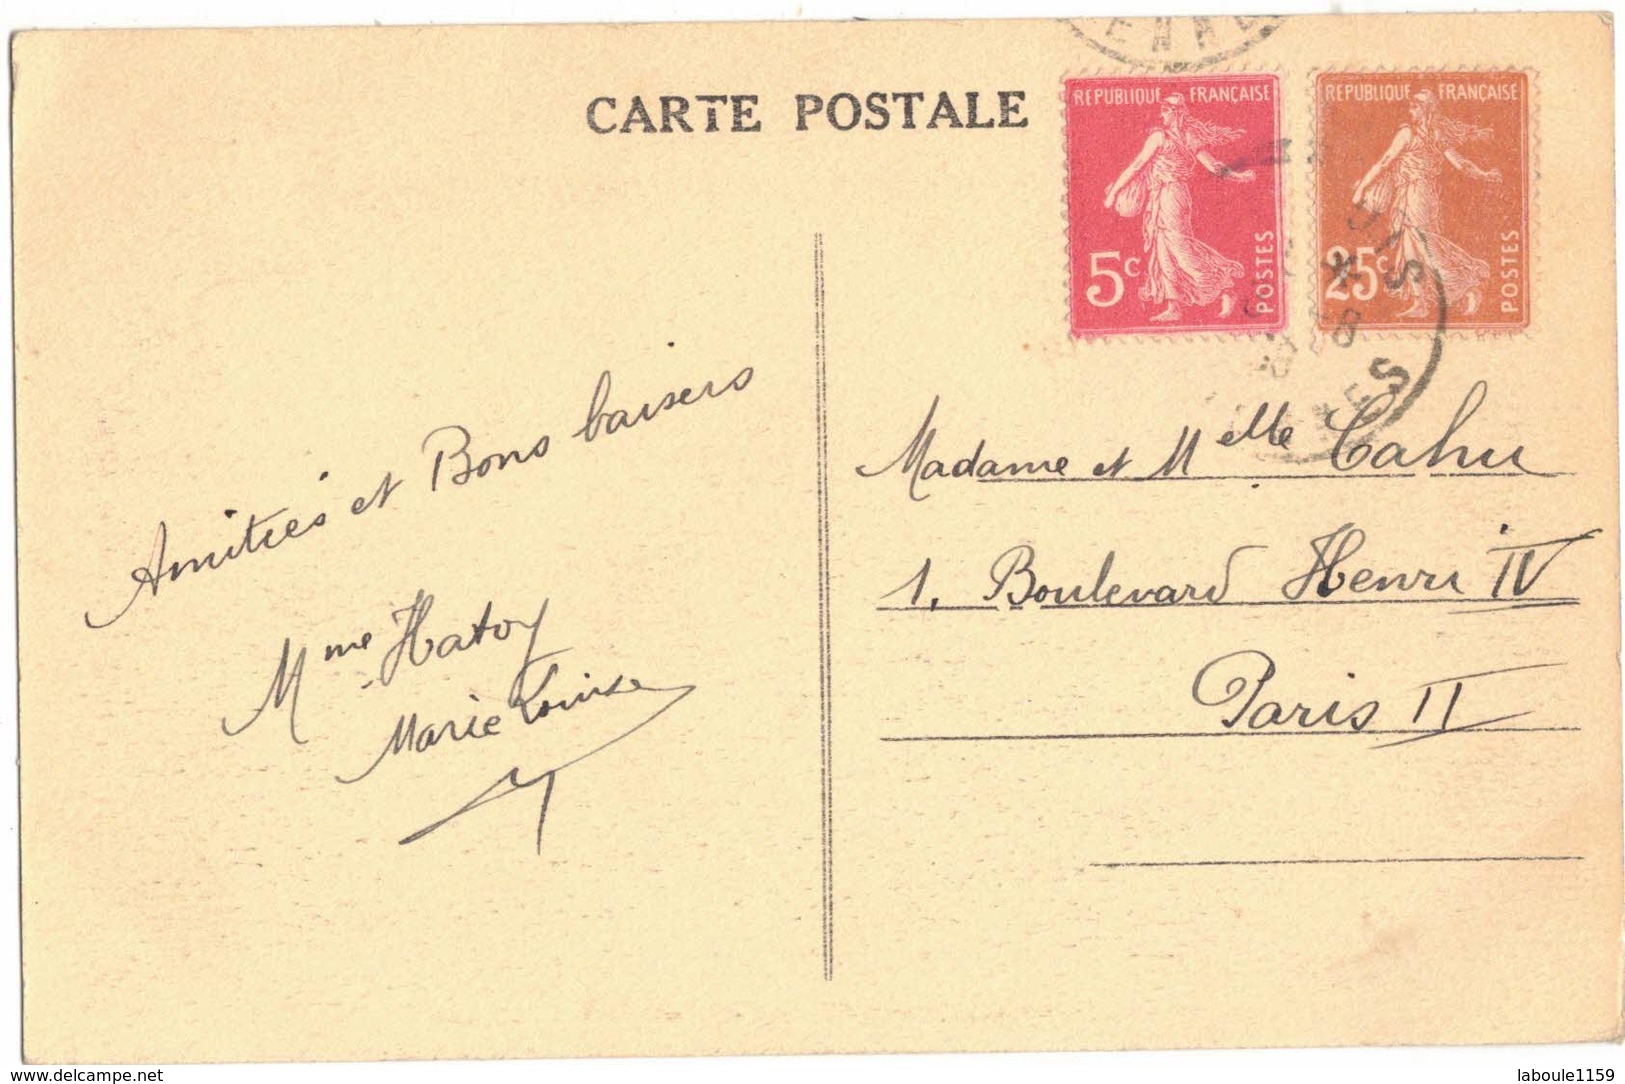 CARTE POSTALE
REPUBLIQUE FRANÇAISE
5c
POSTES
REPUBLIQUE FRANÇAISE
25c
POSTES
Amitiés et Bons baisers
Mme Hatoy
Marie Louise
Madame et Melle Cahu
1, Boulevard Henri IV
Paris II
www.delcampe.net
laboule1159